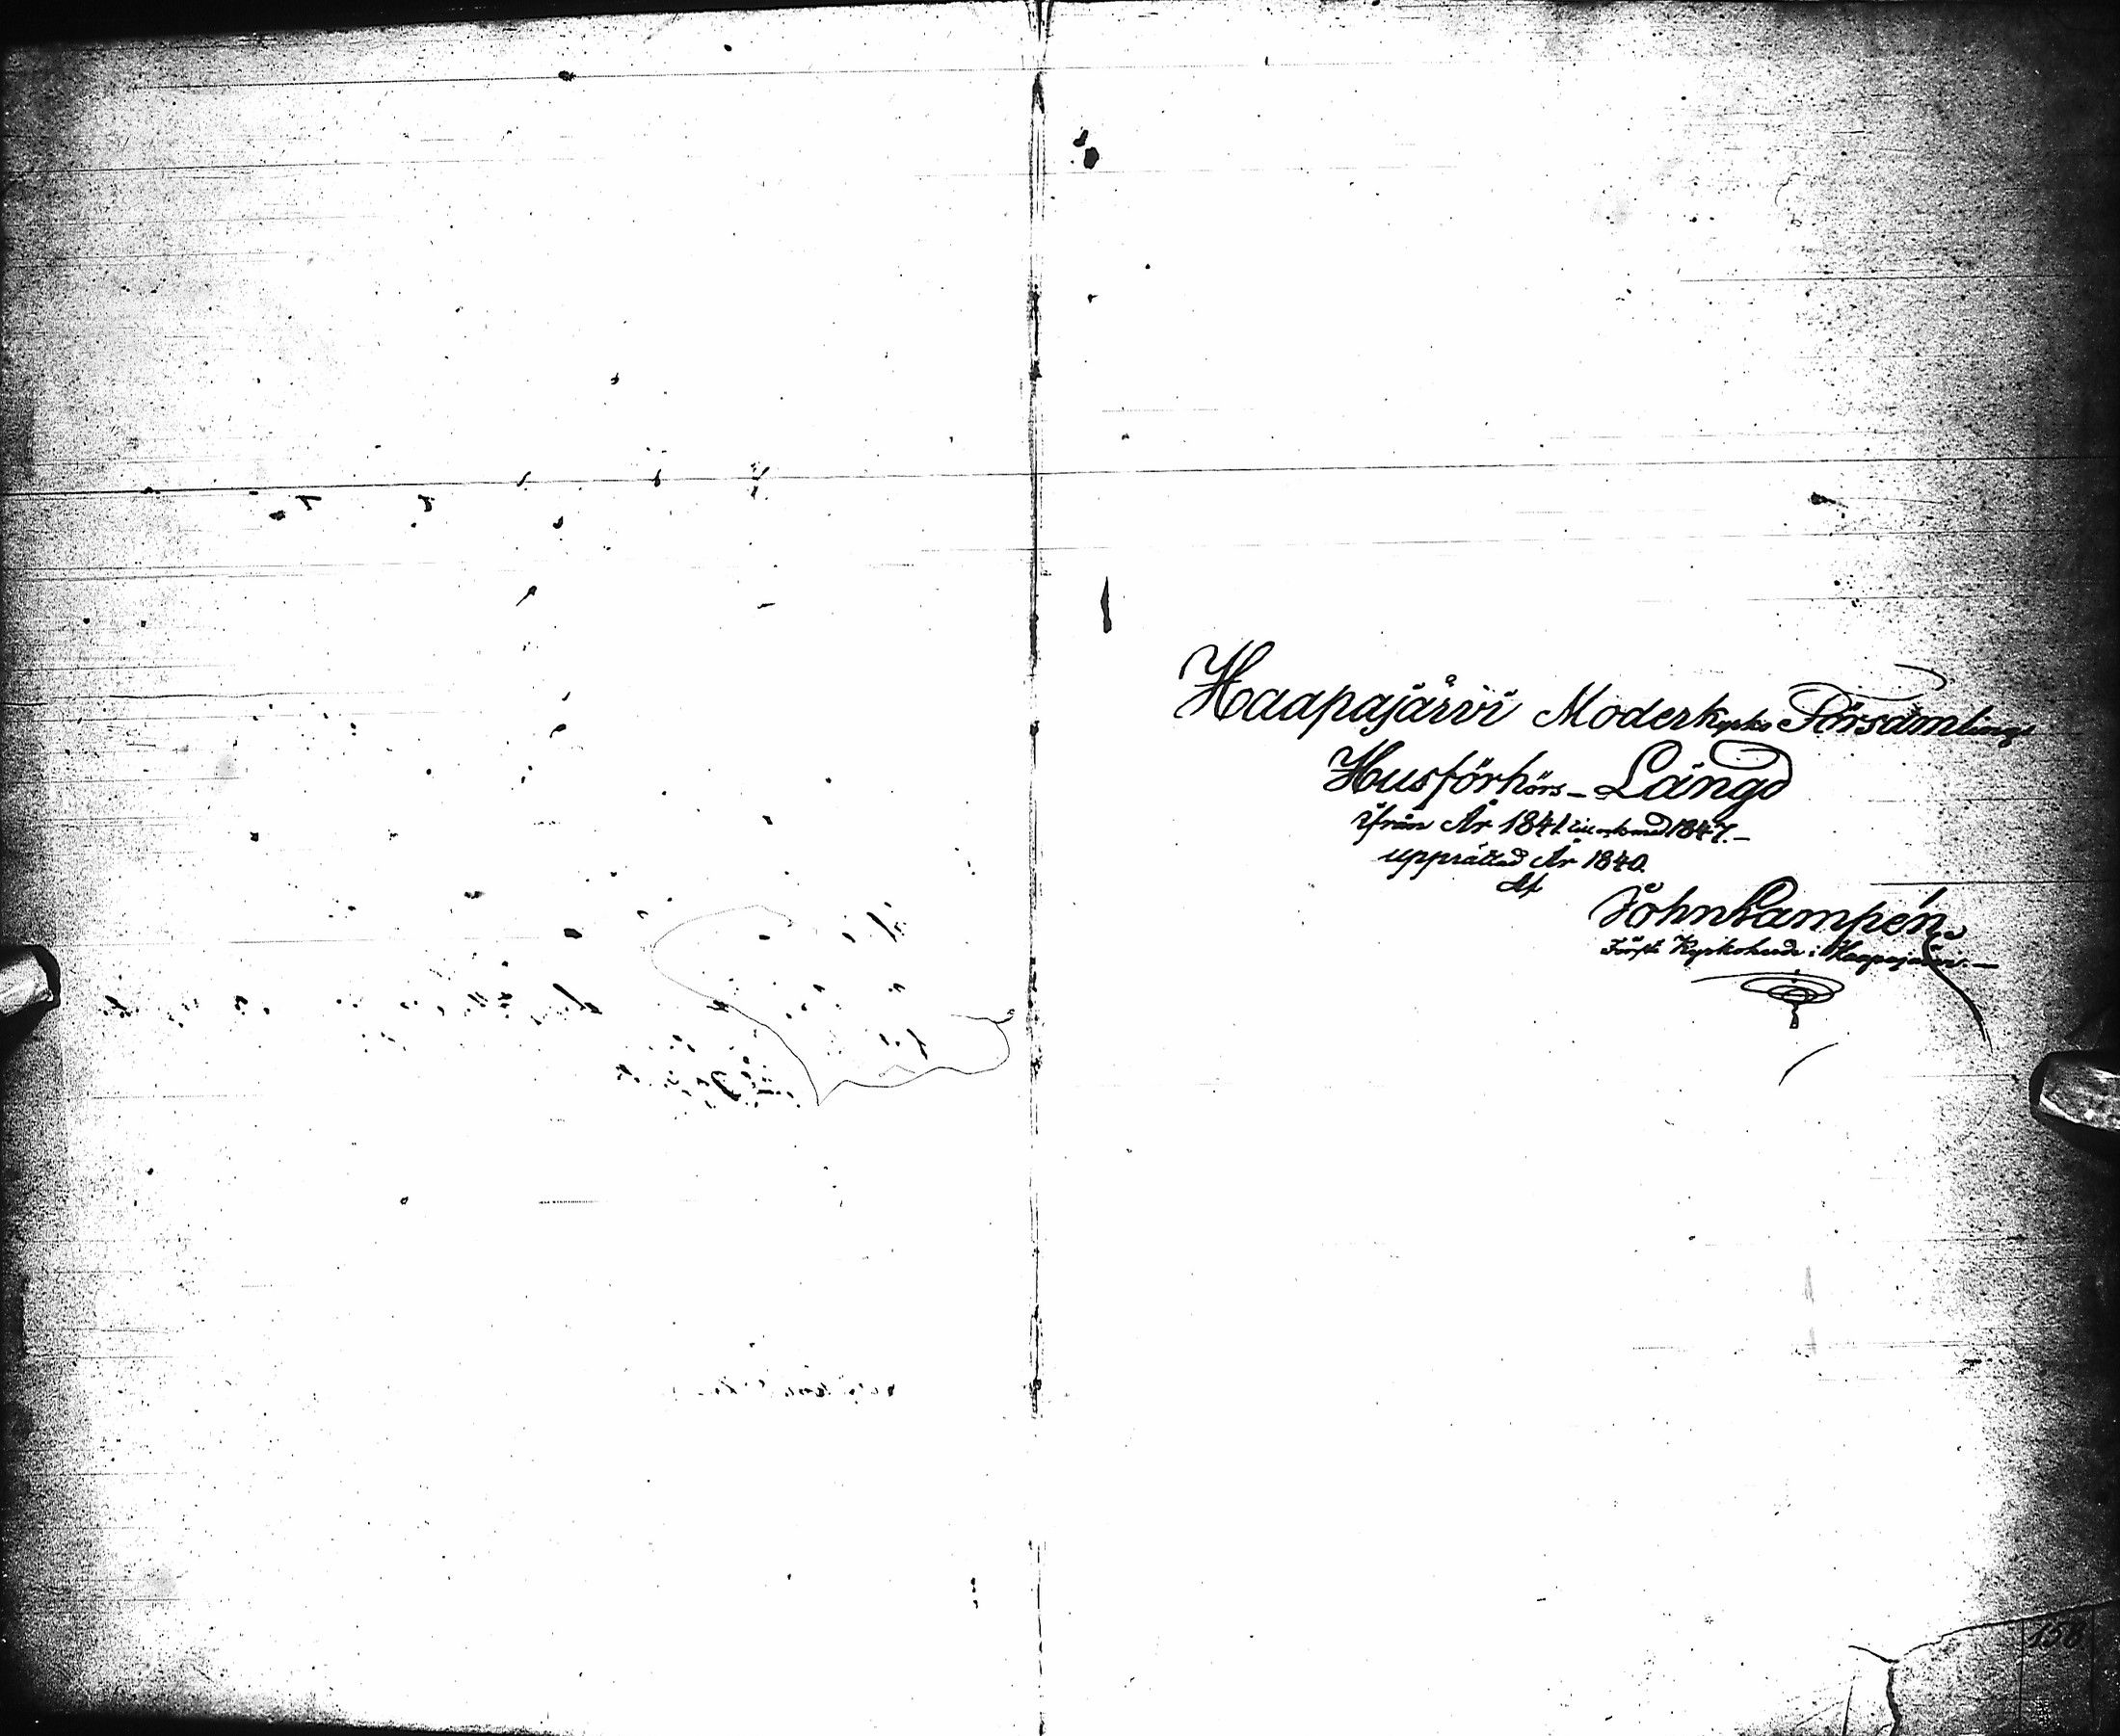 Haapajärvi Moderkyrko Församlings
Husförhörs-Längd
ifrån År 1841 till och med 1847.-
upprättad År 1840.
Af
Joh Lampén
Förste Kyrkoherde i Haapajärvi.-
158